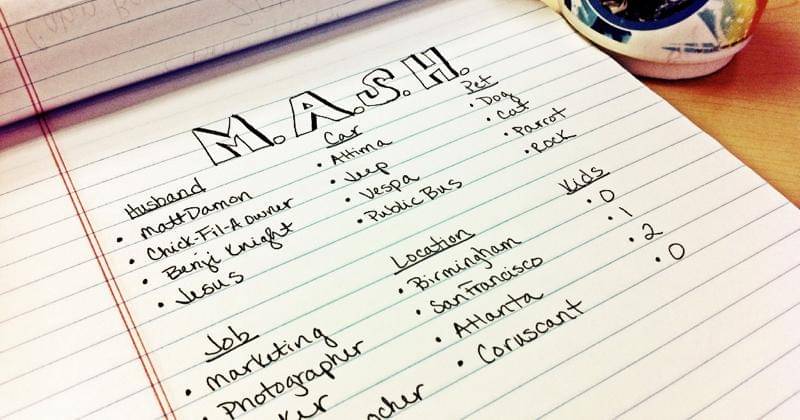 M.A.S.H.
Husband
• Matt Damon
• Chick-Fil-A owner
• Benji Knight
• Jesus
Car
• Altima
• Jeep
• Vespa
• Public Bus
Pet
• Dog
• Cat
• Parrot
• Rock
Job
• Marketing
• Photographer
Location
• Birmingham
• San Francisco
• Atlanta
• Coruscant
Kids
• 0
• 1
• 2
• 0